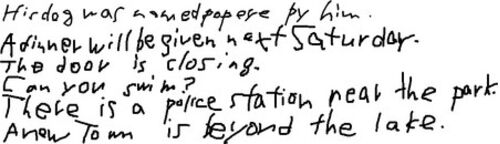 His dog was named popere by him.
A dinner will be given next Saturday.
The door is closing.
Can you swim?
There is a police station near the park.
A new Town is beyond the lake.